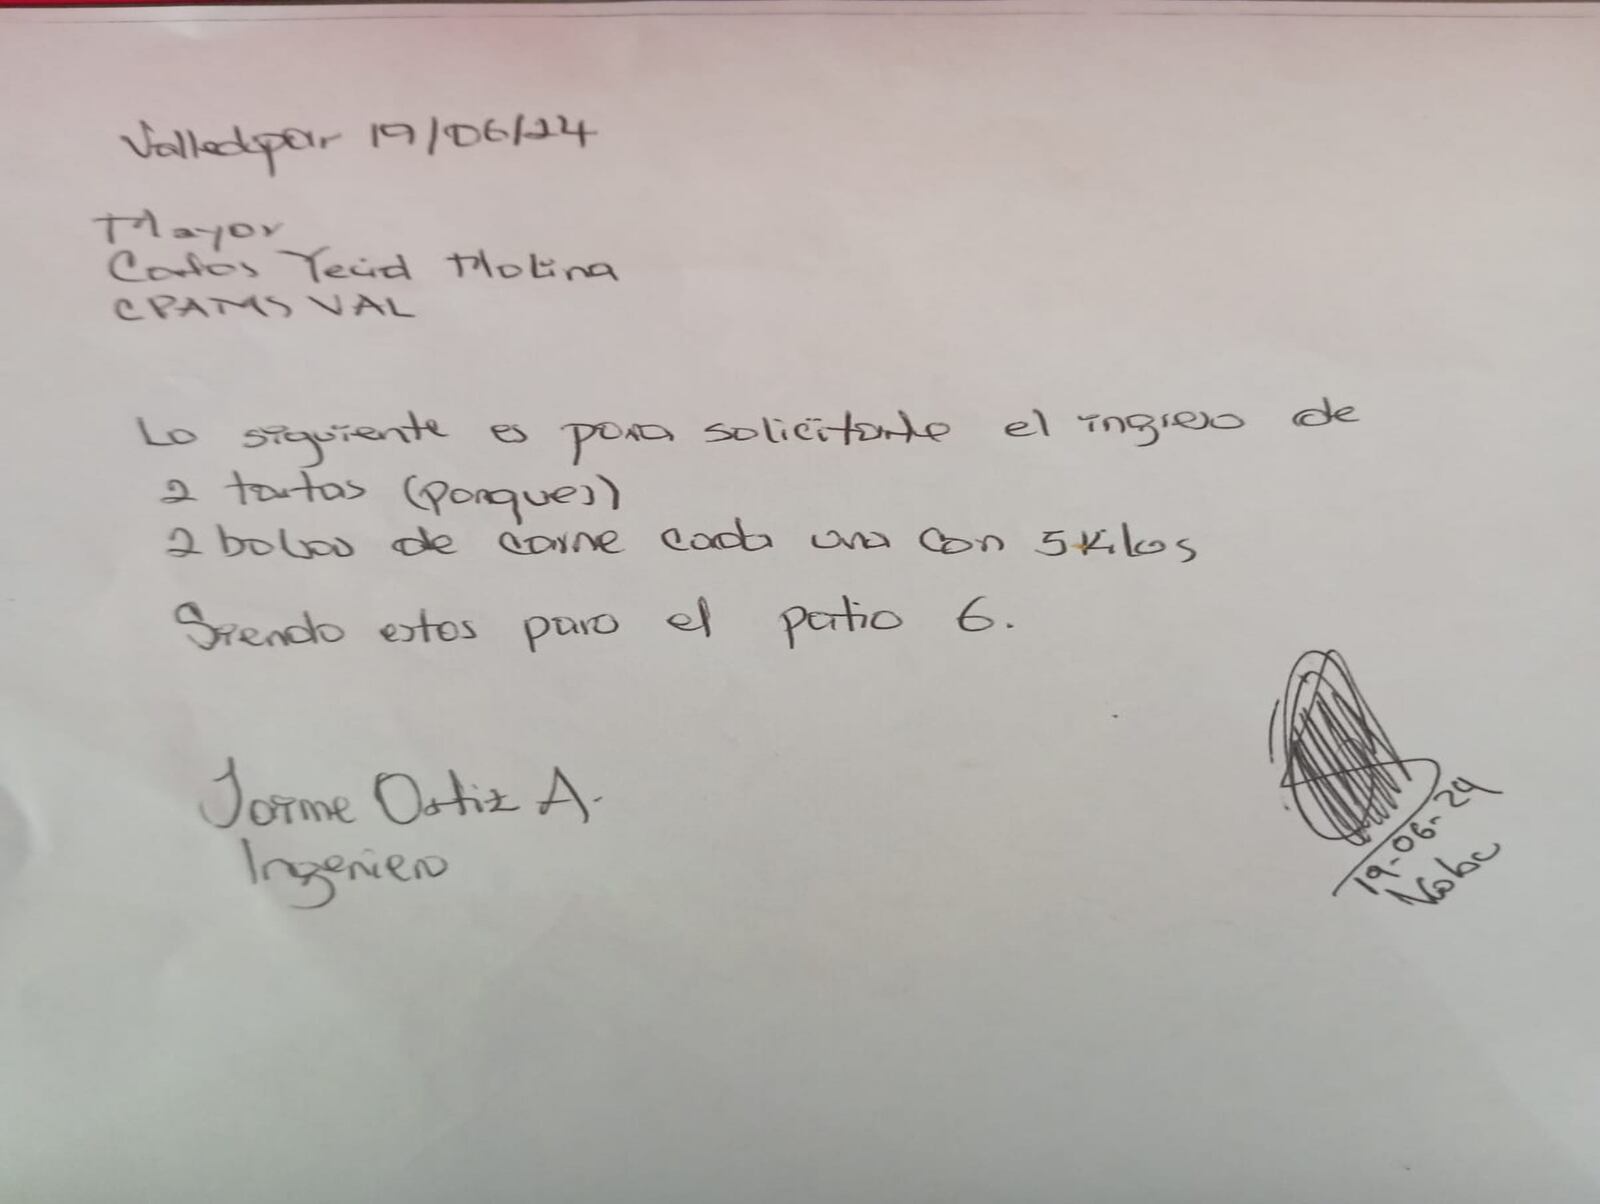 Valledpar 19/06/24
Mayor
Carlos Yecid Molina
CPAMS VAL
Lo siguiente es para solicitarle el ingreso de
2 tortas (ponques)
2 bolsas de carne cada una con 5 kilos
Siendo estos para el patio 6.
Jaime Ortiz A.
Ingeniero
19-06-24